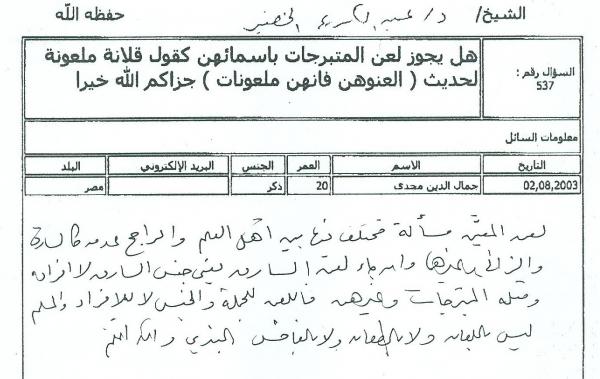 الشيخ/ د/ عبد الكريم الخضير حفظه الله
السؤال رقم :
537
هل يجوز لعن المتبرجات باسمائهن كقول فلانة ملعونة
لحديث ( العنوهن فانهن ملعونات ) جزاكم الله خيرا
معلومات السائل
التاريخ الاسم العمر الجنس البريد الإلكتروني البلد
02,08,2003 جمال الدين مجدى 20 ذكر مصر
لعن المعيّن مسألة مختلف فيها بين أهل العلم والراجح عدمه كالسارق
والزاني وغيرها وإن جاء لعنة السارق يعني جنس السارق لا افراده
ومثله المتبرجات وغيرهن فاللعن للجملة والجنس لا للأفراد والمسلم
ليس باللعان ولا بالطعان ولا بالفاحش البذي والله أعلم